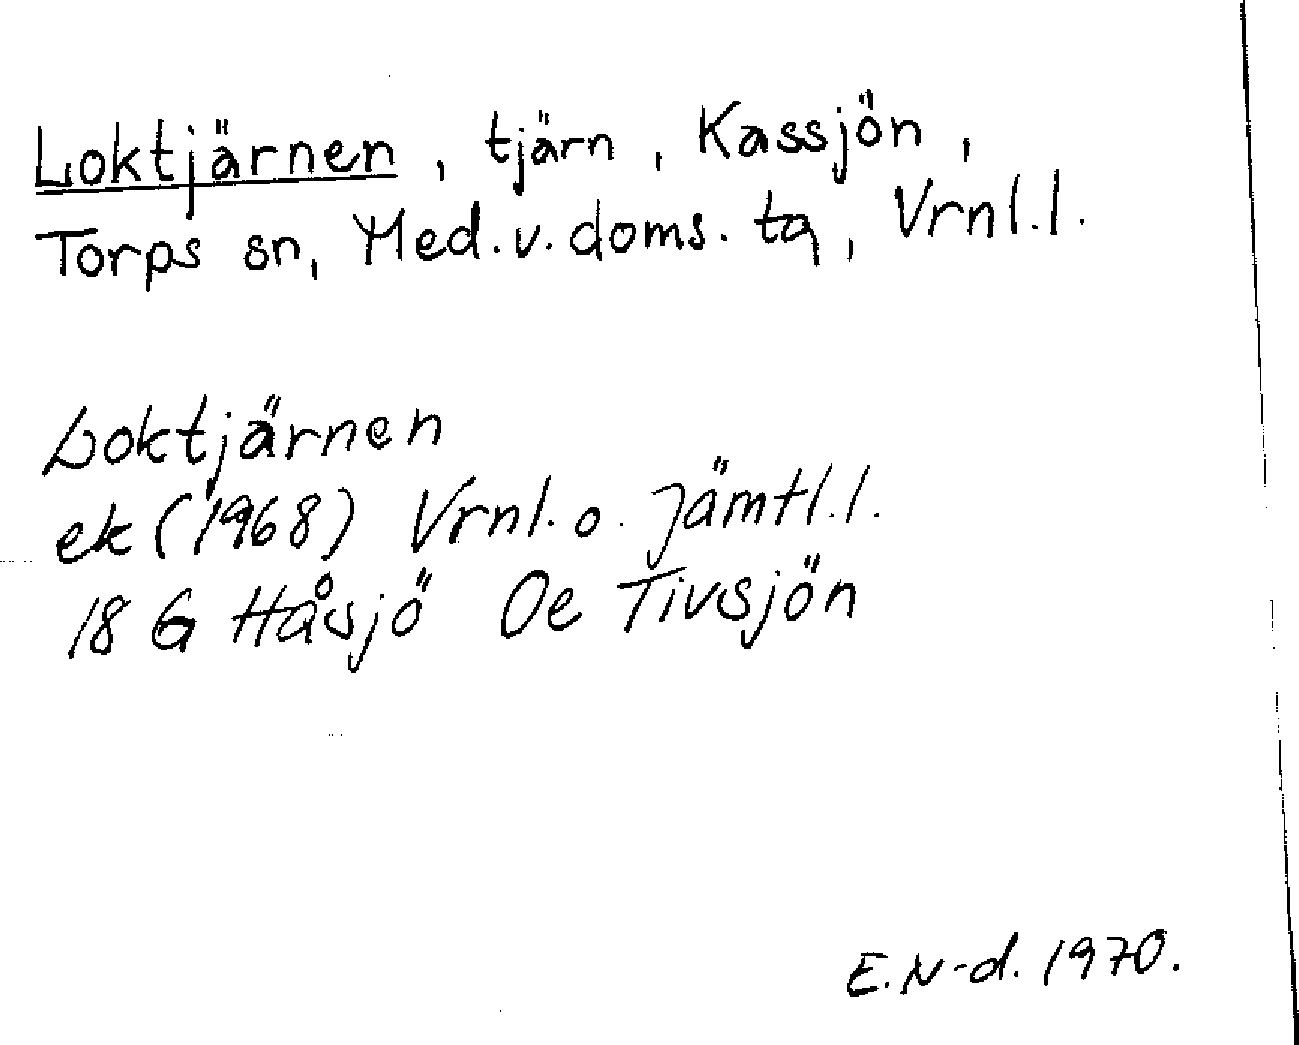 Loktjärnen, tjärn, Kassjön,
Torps sn, Med.v.doms.tg, Vrnl.l.
Loktjärnen
ek (1968) Vrnl. o. Jämtl.l.
18 G Håsjö Oe Tivsjön
E.N-d. 1970.